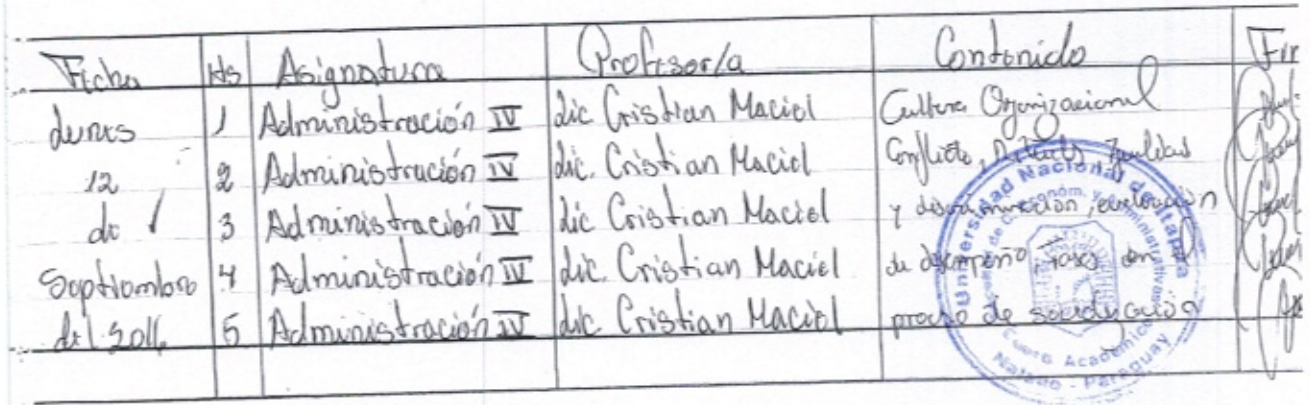 Fecha Hs Asignatura Profesor/a Contenido Fir
Lunes 1 Administración IV Lic Cristian Maciel Cultura Organizacional
12 2 Administración IV Lic. Cristian Maciel Conflicto,
de 3 Administración IV Lic Cristian Maciel y discriminación, evaluación
Septiembre 4 Administración IV Lic. Cristian Maciel de desempeño, Fases en el
del 2011 5 Administración IV Lic. Cristian Maciel proceso de
Universidad Nacional de Itapúa
Académico
Natalio - Paraguay